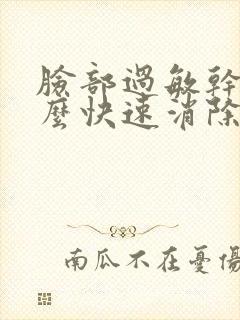 臉部過敏幹
麼快速消除
南瓜不在憂傷